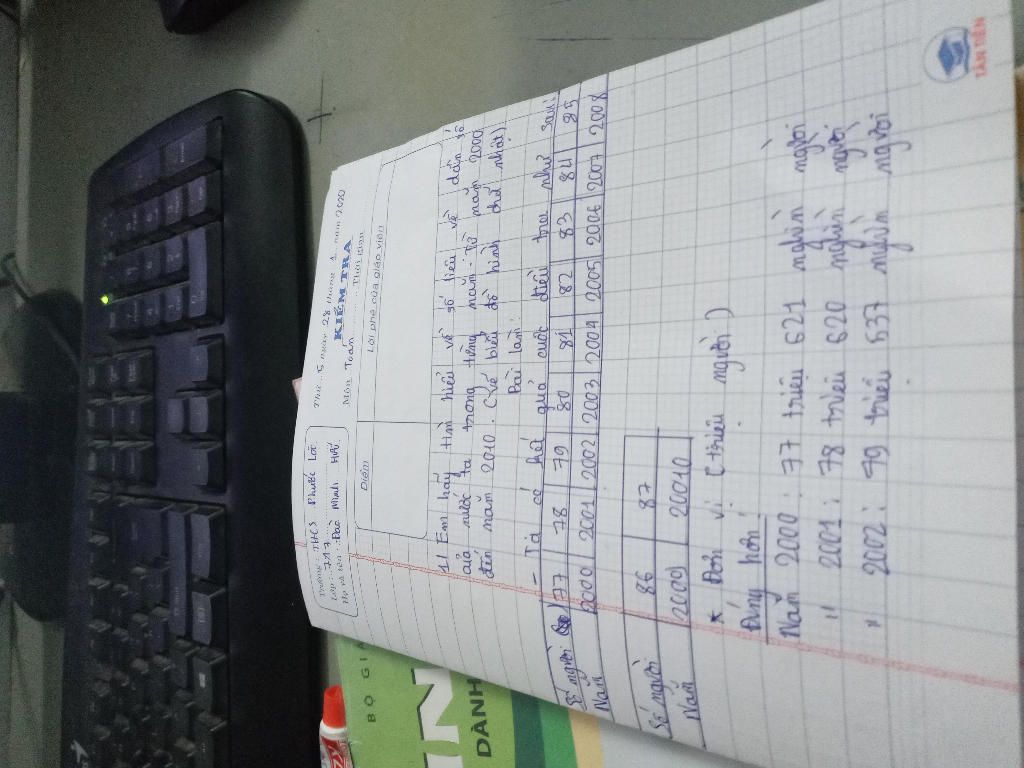 Thứ 5 ngày 28 tháng 1 năm 2020
KIỂM TRA
Môn Toán Thời gian
Trường: THCS Phước Lời
Lớp: 7A7
Họ và tên: Đào Minh Hiếu
Điểm
Lời phê của giáo viên
1) Em hãy tìm hiểu về số liệu về dân số
của nước ta trong từng năm từ năm 2000
đến năm 2010. (Vẽ biểu đồ hình chữ nhật)
Bài làm:
- Ta có kết quả cuộc điều tra như sau:
Số người 77 78 79 80 81 82 83 84 85
Năm 2000 2001 2002 2003 2004 2005 2006 2007 2008
Số người 86 87
Năm 2009 2010
* Đơn vị (triệu người)
Đúng hơn:
Năm 2000: 77 triệu 621 nghìn người
" 2001: 78 triệu 620 nghìn người
" 2002: 79 triệu 537 nghìn người
TÂN TIẾN
BỘ GI
DÀNH